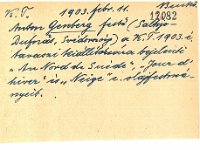 K.T. 1903. febr. 11. Benkő
12082
Anton Genberg festő (Saltsjö
Dufvnäs, Svédország) a K.T. 1903. i
tavaszi kiállítására bejelenti
"Au Nord de Suède", "Jour d'
hiver" és "Neige" c. olajfestmé-
nyeit.